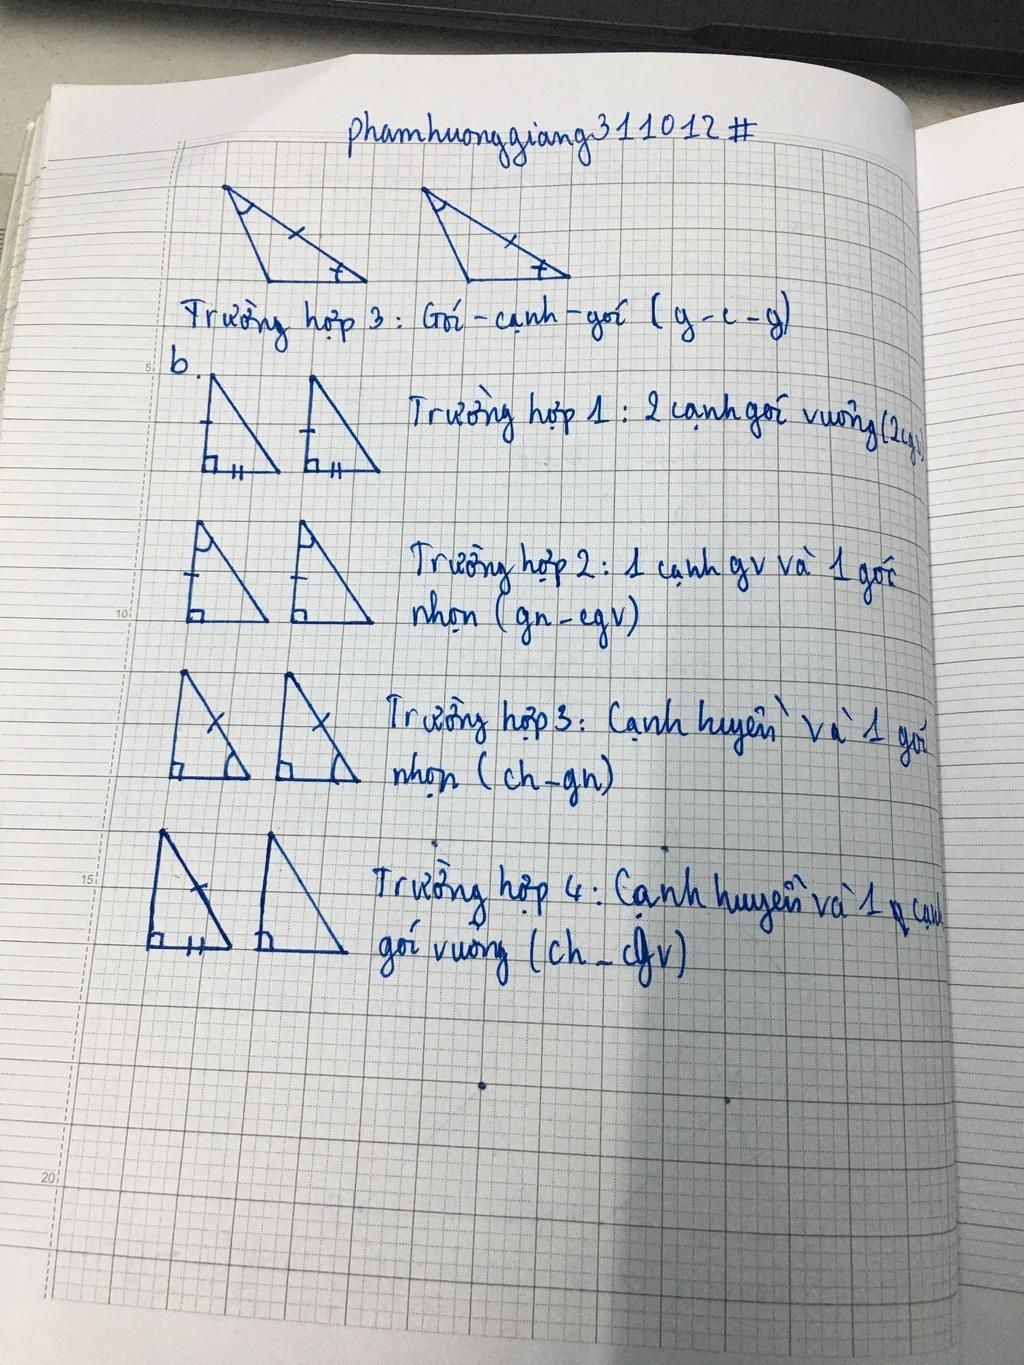 phamhuonggiang311012#
Trường hợp 3: Góc-cạnh-góc (g-c-g)
5
b.
Trường hợp 1: 2 cạnh góc vuông (2cgv)
Trường hợp 2: 1 cạnh gv và 1 góc
10
nhọn (gn-cgv)
Trường hợp 3: Cạnh huyền và 1 góc
nhọn (ch-gn)
15
Trường hợp 4: Cạnh huyền và 1 cạnh
góc vuông (ch-cgv)
20